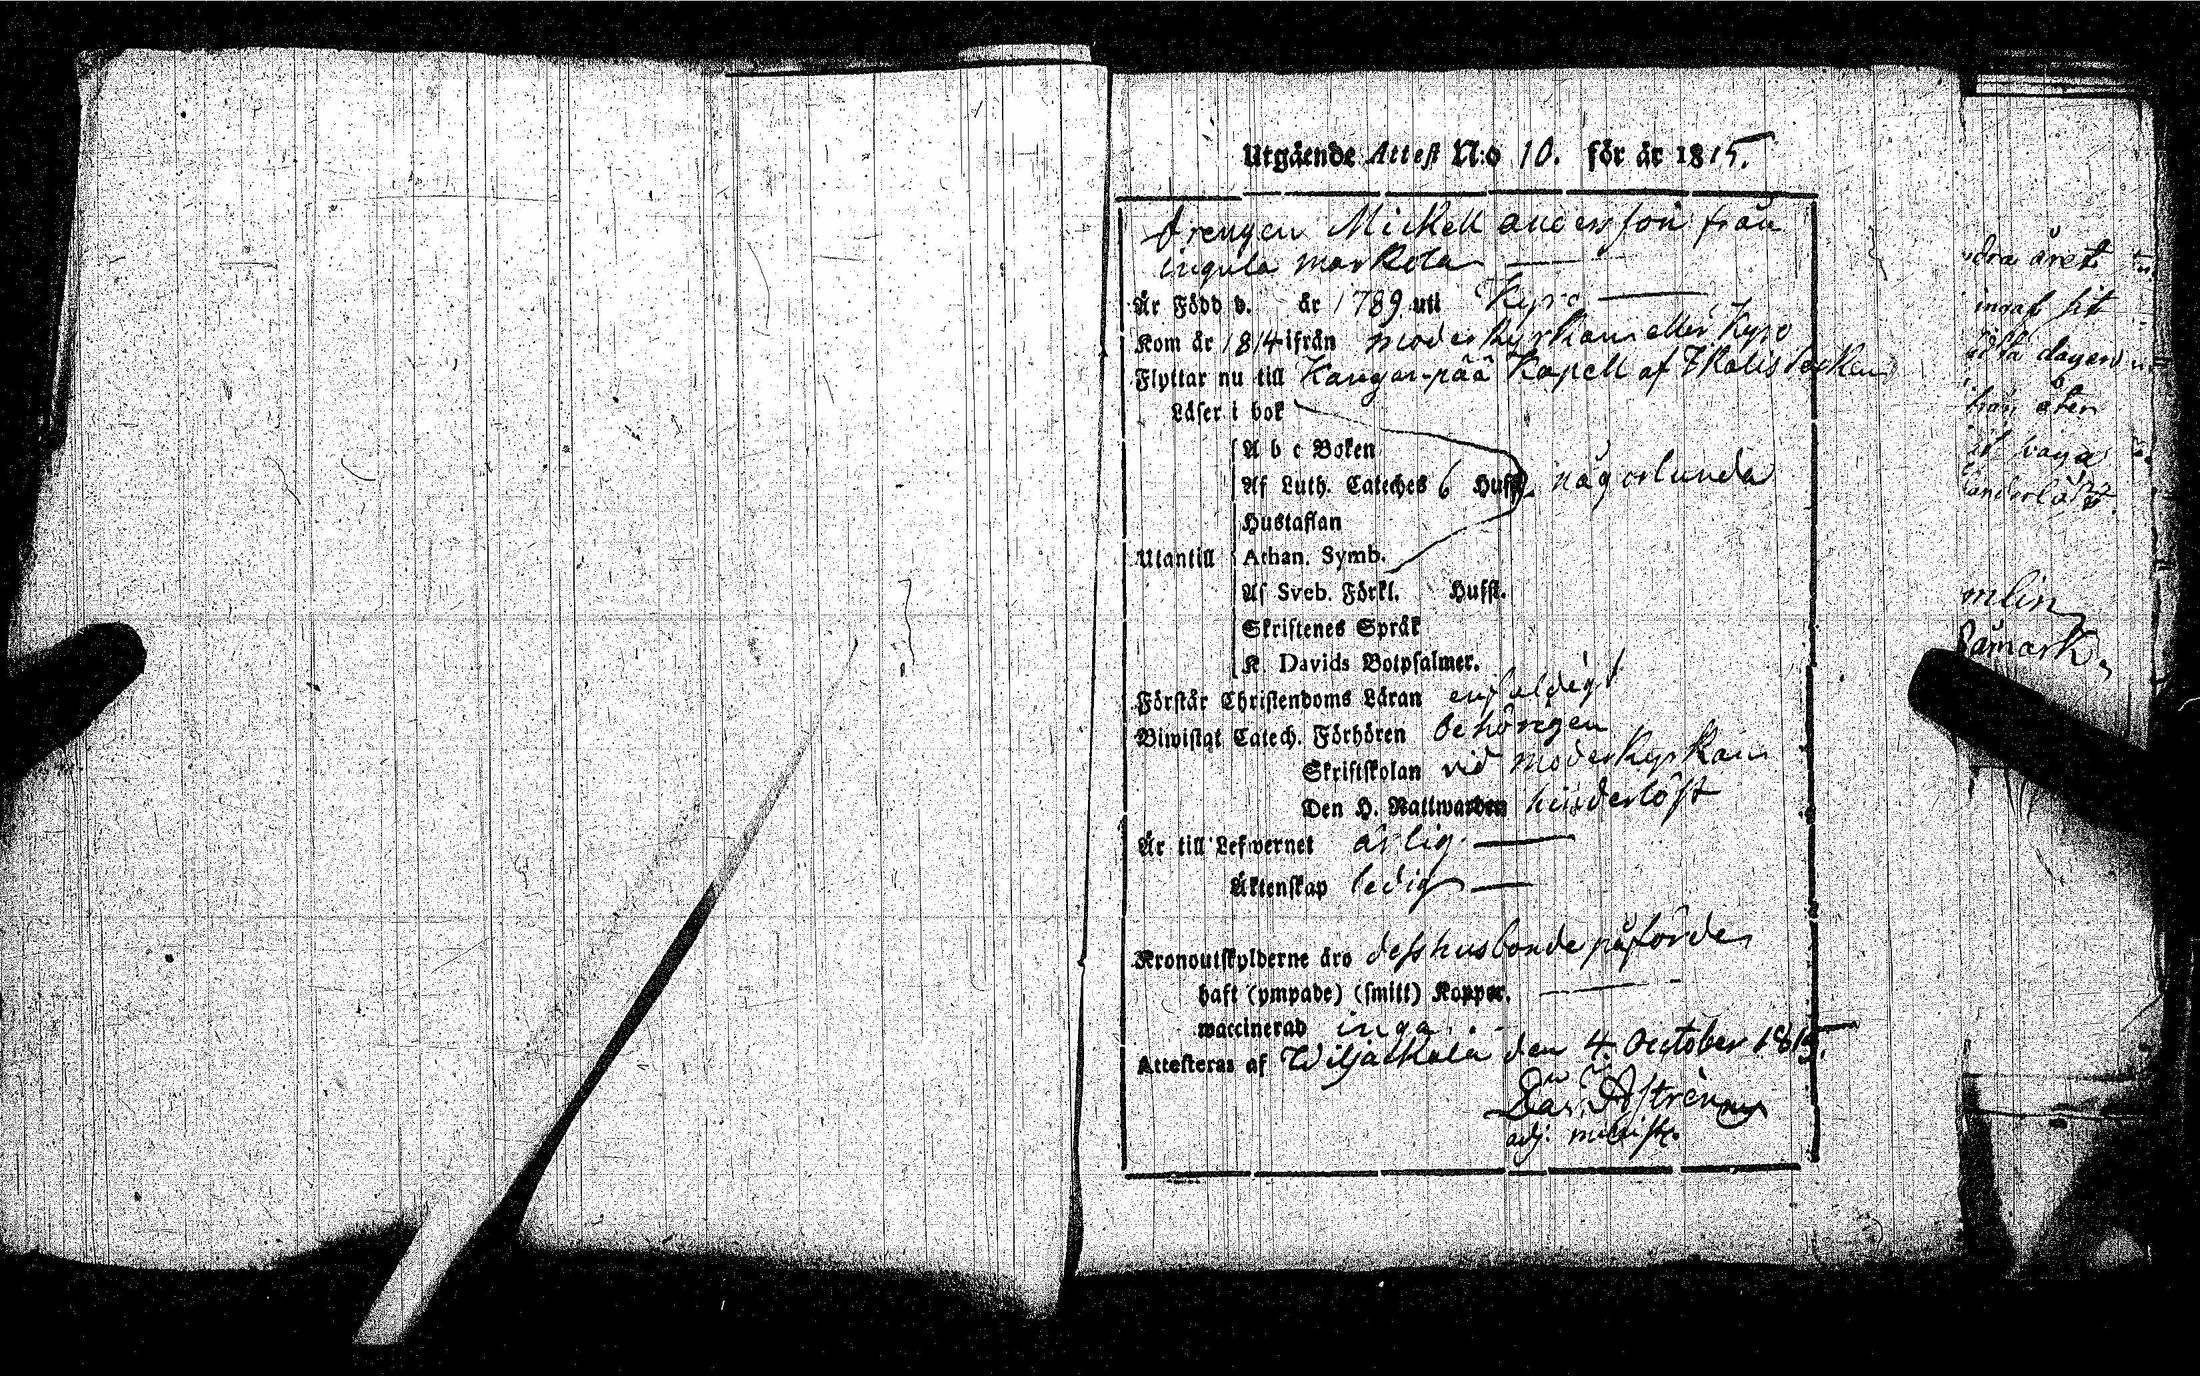 Utgående Attest N:o 10. för år 1815.
Drengen Mickell andersson från
ingula markela
Är Född d. år 1789 uti Kyro
Kom år 1814 ifrån moderkyrkan eller Kyro
Flyttar nu till Kangas-pää Kapell af Ikalis Socken
Läser i bok
A b c Boken
Af Luth. Cateches 6 Hufst. någorlunda
Hustaflan
Utantill Athan. Symb.
Af Sveb. Förkl. Hufst.
Skriftenes Språk
K. Davids Botpsalmer.
Förstår Christendoms Läran enfaldigt
Biwistat Catech. Förhören behörigen
Skriftskolan vid moderkyrkan
Den H. Nattwarden hinderlöst
Är till Lefvernet ärlig
Äktenskap ledig
Kronoutskylderne äro dess husbonde påförde
haft (ympade) (smitt) Koppor.
waccinerad inga
Attesteras af Wiljackala den 4. October 1815.
Astrén
adj. minist.
dra året
ingaf sit
dagen
åter
mlin